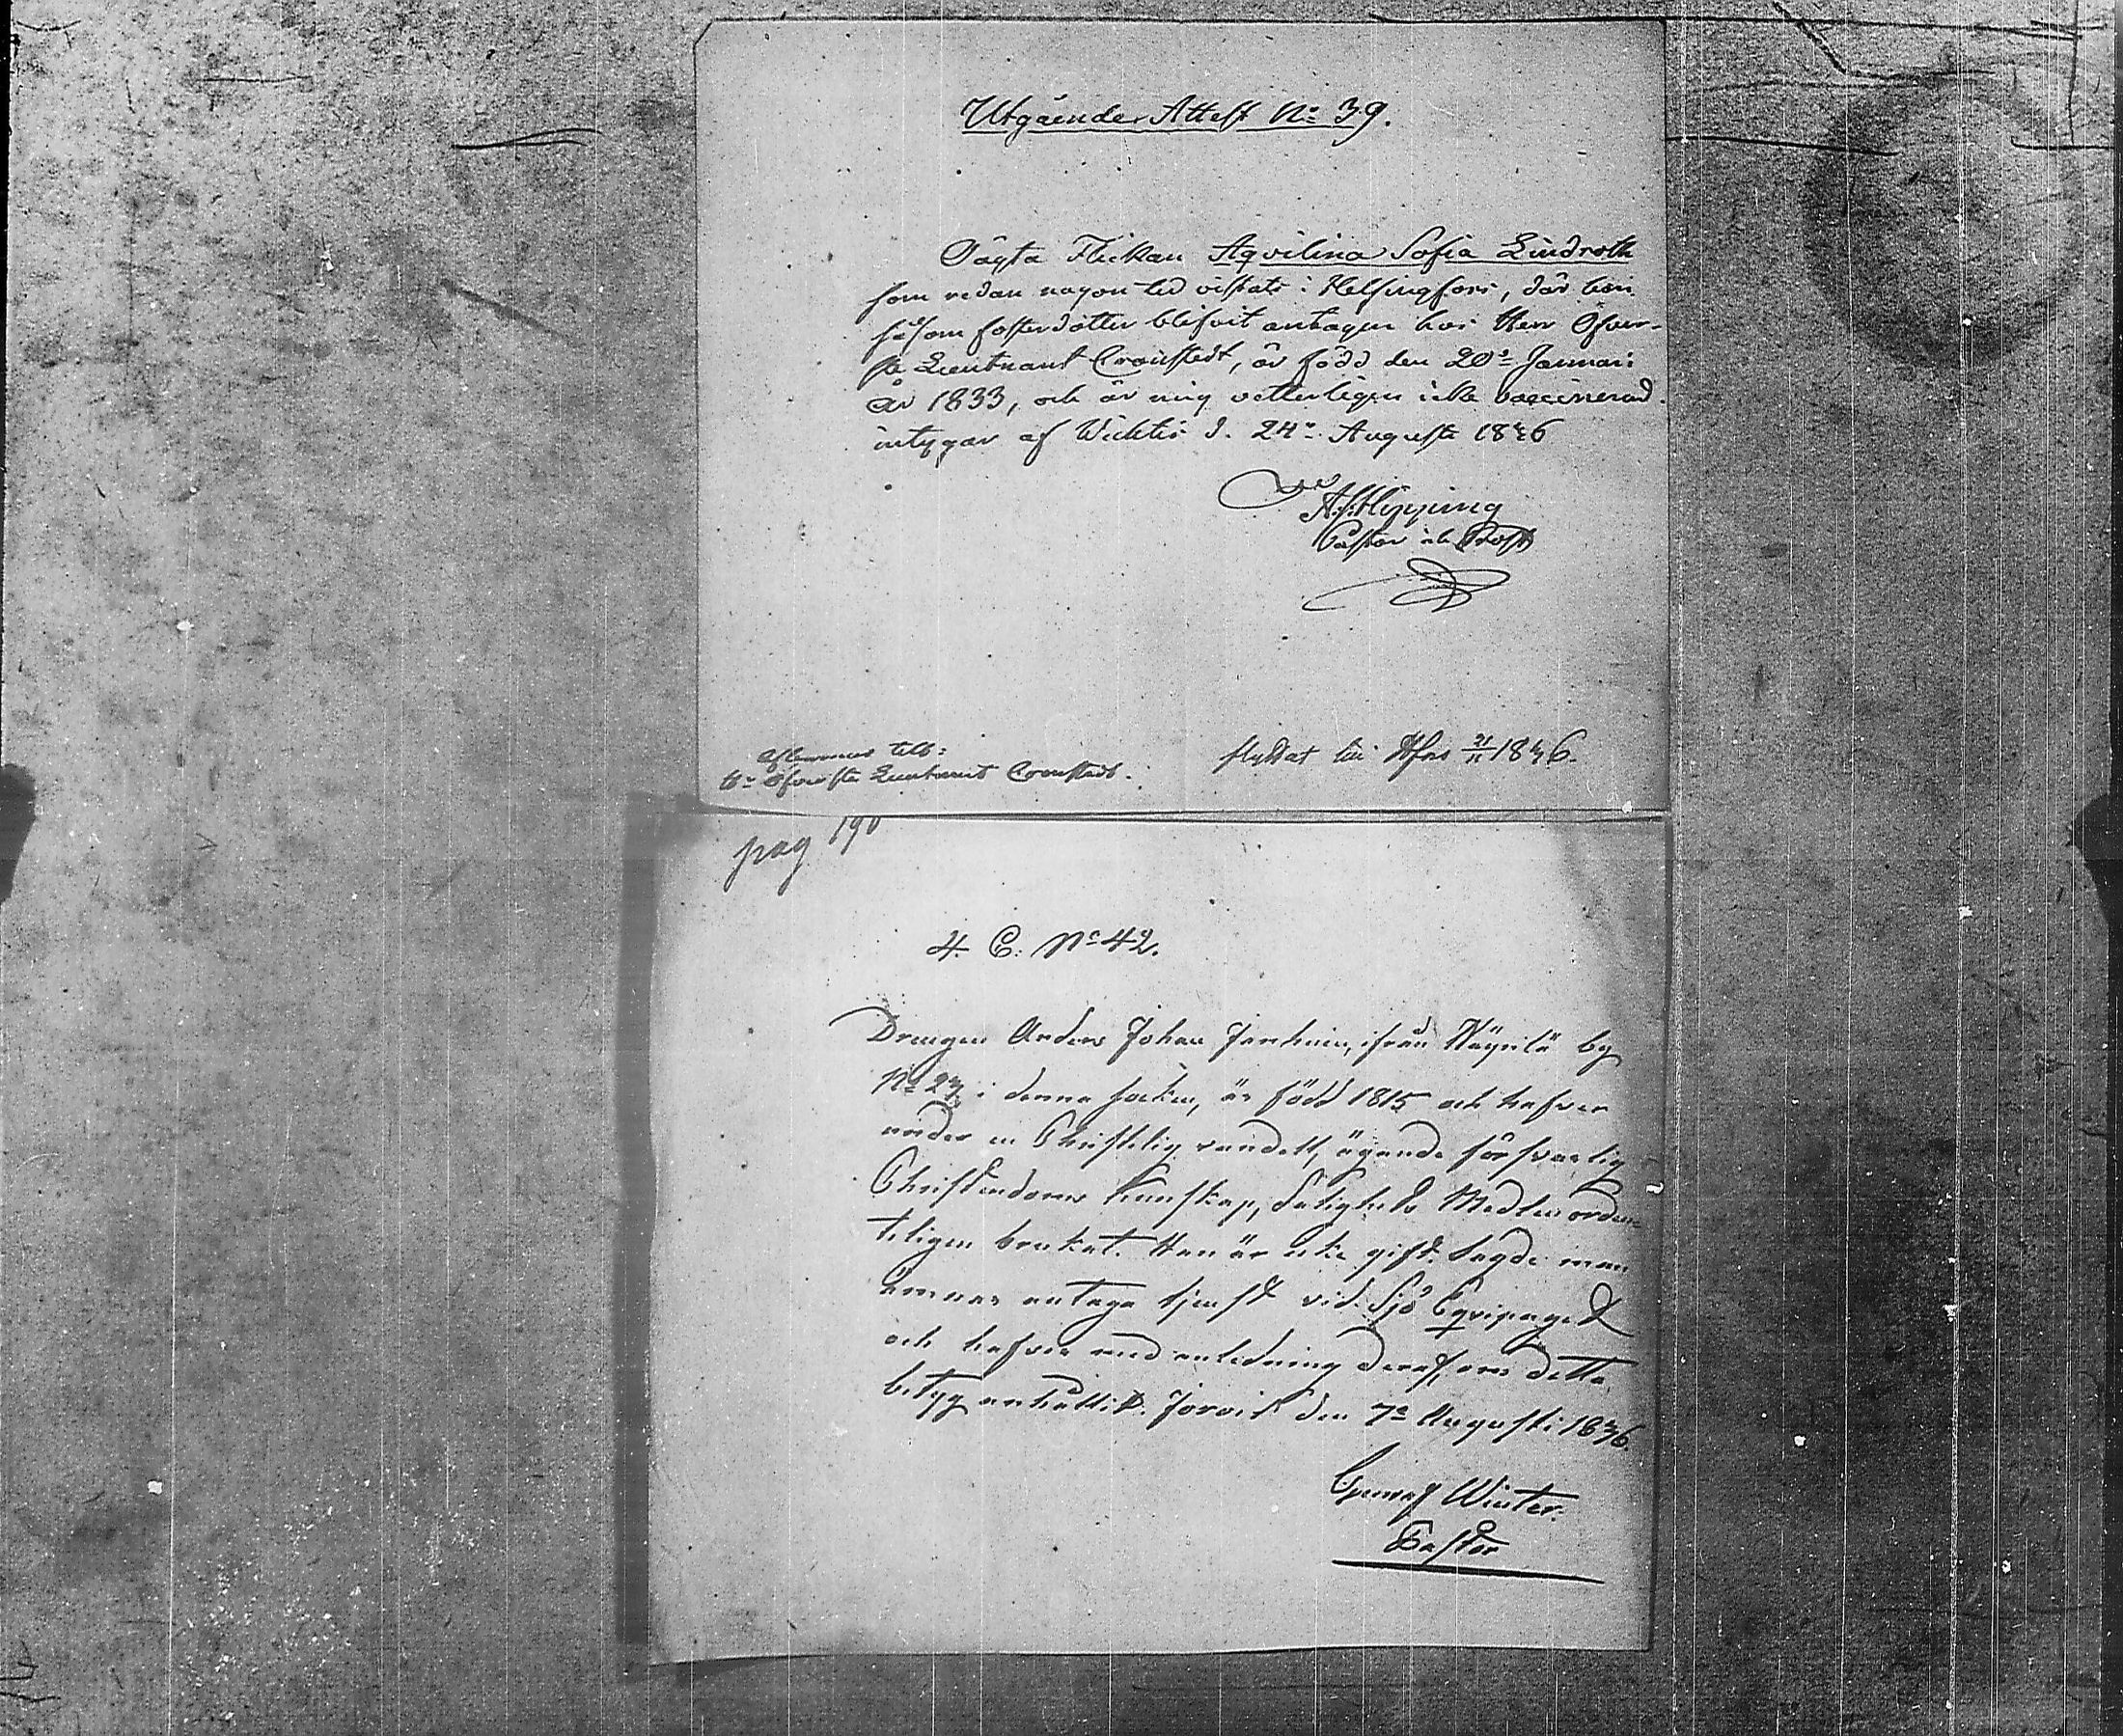 Utgående Attest No 39.
Oägta Flickan Aqvilina Sofia Lindroth
som redan någon tid vistats i Helsingfors, där hon
såsom fosterdotter blifvit antagen hos Herr Öfver-
ste Lieutnant Cronstedt, är född den 20de Januari
år 1833, och är mig vetterligen icke vaccinerad.
intygar af Wichtis d. 24de Augusti 1846
A. F. Hipping
Pastor och Prost
Aflemnas till:
Hr Öfverste Lieutnant Cronstedt.
flyttat till Hfors 21/11 1846.
pag 190
4. C. No 42.
Drengen Anders Johan ifrån by
No 27 i denna socken, är född 1815 och hafver
under en Christelig vandel, ägande försvarlig
Christendoms kunskap, Salighets Medlen orden-
teligen brukat. Han är icke gift. Sagde man
ämnar antaga tjenst vid Sjö Eqvipaget
och hafver med anledning deraf, om detta
betyg anhållit. Jorois den 7de Augusti 1836.
Gumaf Winter.
Pastor